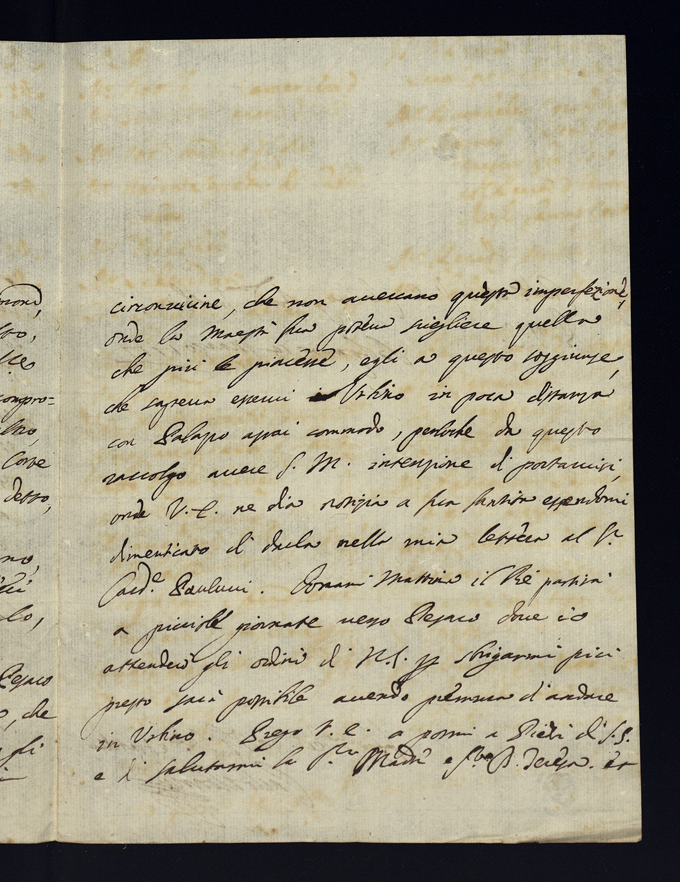 circonvicine, che non avevano questa imperfezione,
onde la Maestà sua poteva scegliere quella
che più le piacesse, egli a questo soggiunse,
che sapeva esservi Urbino in poca distanza
con Palazzo assai commodo, perloche da questo
raccolgo avere S. M. intenzione di portarvisi,
onde V. E. ne dia notizia a sua Santità essendomi
dimenticato di darla nella mia lettera al Sr
Cardle Paulucci. Domani Mattina il Rè partirà
a piccole giornate verso Pesaro dove io
attenderò gli ordini di N. S. per sbrigarmi più
presto sarà possibile avendo premura d'andare
in Urbino. Prego V. E. a pormi a Piedi di S. S.
e di salutarmi la Sra Madre e D. Teresa. ed
moni,
sto,
compro=
Corte
detto,
no,
lo,
Pesaro
o, che
gli